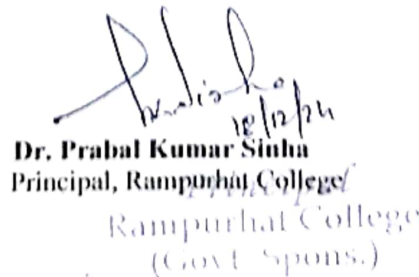 18/12/24
Dr. Prabal Kumar Sinha
Principal, Rampurhat College
Rampurhat College
(Govt. Spons.)